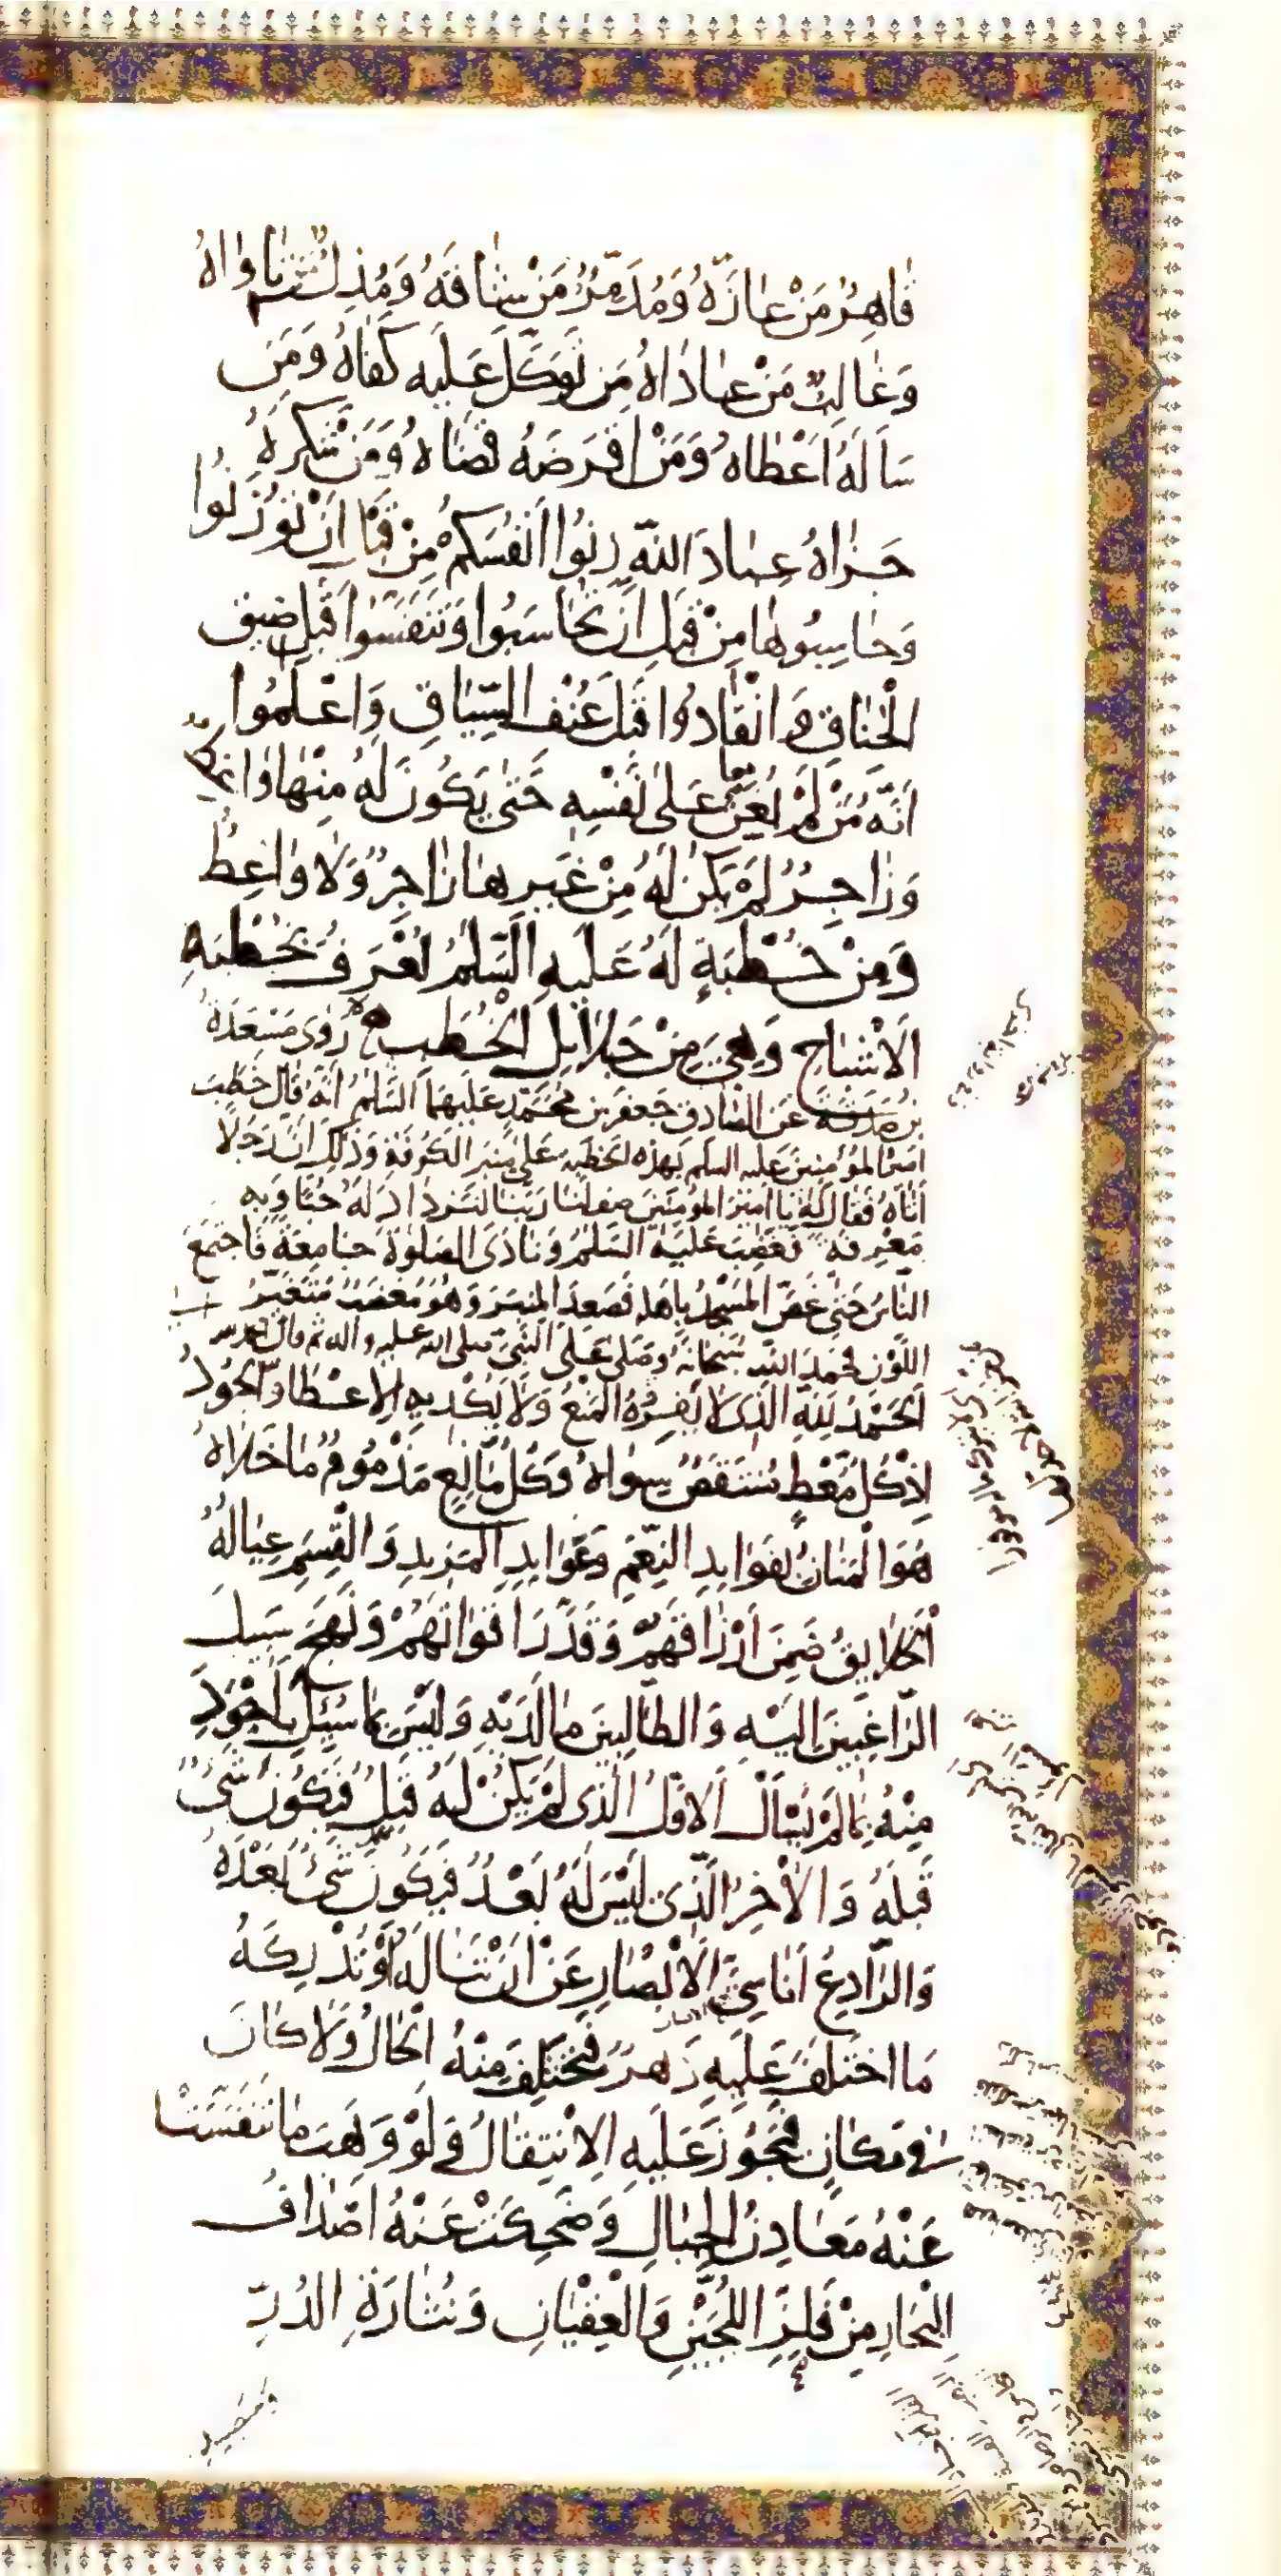 قَاهِرُ مَنْ عَازَّهُ وَمُدَمِّرُ مَنْ شَاقَّهُ وَمُذِلُّ مَنْ نَاوَاهُ
وَغَالِبُ مَنْ عَادَاهُ مَنْ تَوَكَّلَ عَلَيْهِ كَفَاهُ وَمَنْ
سَأَلَهُ اَعْطَاهُ وَمَنْ اَقْرَضَهُ قَضَاهُ وَمَنْ شَكَرَهُ
جَزَاهُ عِبَادَ اللّهِ زِنُوا اَنْفُسَكُمْ مِنْ قَبْلِ اَنْ تُوزَنُوا
وَحَاسِبُوهَا مِنْ قَبْلِ اَنْ تُحَاسَبُوا وَتَنَفَّسُوا قَبْلَ ضِيقِ
الْخِنَاقِ وَانْقَادُوا قَبْلَ عُنْفِ السِّيَاقِ وَاعْلَمُوا
اَنَّهُ مَنْ لَمْ يُعَنْ عَلَى نَفْسِهِ حَتَّى يَكُونَ لَهُ مِنْهَا وَاعِظٌ
وَزَاجِرٌ لَمْ يَكُنْ لَهُ مِنْ غَيْرِهَا زَاجِرٌ وَلَا وَاعِظٌ
وَمِنْ خُطْبَةٍ لَهُ عَلَيْهِ السَّلَمُ تُعْرَفُ بِخُطْبَةِ
الْاَشْبَاحِ وَهِيَ مِنْ جَلَايِلِ الْخُطَبِ رَوَى مَسْعَدَةُ
بْنُ صَدَقَةَ عَنِ الصَّادِقِ جَعْفَرِ بْنِ مُحَمَّدٍ عَلَيْهِمَا السَّلَمُ اَنَّهُ قَالَ خَطَبَ
اَمِيرُ الْمُؤْمِنِينَ عَلَيْهِ السَّلَمُ بِهَذِهِ الْخُطْبَةِ عَلَى مِنْبَرِ الْكُوفَةِ وَذَلِكَ اَنَّ رَجُلًا
اَتَاهُ فَقَالَ لَهُ يَا اَمِيرَ الْمُؤْمِنِينَ صِفْ لَنَا رَبَّنَا لِنَزْدَادَ لَهُ حُبًّا وَبِهِ
مَعْرِفَةً فَغَضِبَ عَلَيْهِ السَّلَمُ وَنَادَى الصَّلٰوةَ جَامِعَةً فَاجْتَمَعَ
النَّاسُ حَتَّى غَصَّ الْمَسْجِدُ بِاَهْلِهِ فَصَعِدَ الْمِنْبَرَ وَهُوَ مُغْضَبٌ مُتَغَيِّرُ
اللَّوْنِ فَحَمِدَ اللّهَ سُبْحَانَهُ وَصَلَّى عَلَى النَّبِيِّ صلى الله عليه وآله ثم قال
اَلْحَمْدُ لِلّهِ الَّذِي لَا يَفِرُهُ الْمَنْعُ وَلَا يُكْدِيهِ الْاِعْطَاءُ وَالْجُودُ
اِذْ كُلُّ مُعْطٍ مُنْتَقَصٌ سِوَاهُ وَكُلُّ مَانِعٍ مَذْمُومٌ مَا خَلَاهُ
هُوَ الْمَنَّانُ بِفَوَايِدِ النِّعَمِ وَعَوَايِدِ الْمَزِيدِ وَالْقِسَمِ عِيَالُهُ
الْخَلَايِقُ ضَمِنَ اَرْزَاقَهُمْ وَقَدَّرَ اَقْوَاتَهُمْ وَنَهَجَ سَبِيلَ
الرَّاغِبِينَ اِلَيْهِ وَالطَّالِبِينَ مَا لَدَيْهِ وَلَيْسَ بِمَا سُئِلَ بِاَجْوَدَ
مِنْهُ بِمَا لَمْ يُسْاَلْ اَلْاَوَّلُ الَّذِي لَمْ يَكُنْ لَهُ قَبْلٌ فَيَكُونَ شَيْءٌ
قَبْلَهُ وَالْاٰخِرُ الَّذِي لَيْسَ لَهُ بَعْدٌ فَيَكُونَ شَيْءٌ بَعْدَهُ
وَالرَّادِعُ اَنَاسِيَّ الْاَبْصَارِ عَنْ اَنْ تَنَالَهُ اَوْ تُدْرِكَهُ
مَا اخْتَلَفَ عَلَيْهِ دَهْرٌ فَيَخْتَلِفَ مِنْهُ الْحَالُ وَلَا كَانَ
فِي مَكَانٍ فَيَجُوزَ عَلَيْهِ الْاِنْتِقَالُ وَلَوْ وَهَبَ مَا تَنَفَّسَتْ
عَنْهُ مَعَادِنُ الْجِبَالِ وَضَحِكَتْ عَنْهُ اَصْدَافُ
الْبِحَارِ مِنْ فِلِزِّ اللُّجَيْنِ وَالْعِقْيَانِ وَنُثَارَةِ الدُّرِّ
وَحَصِيدِ